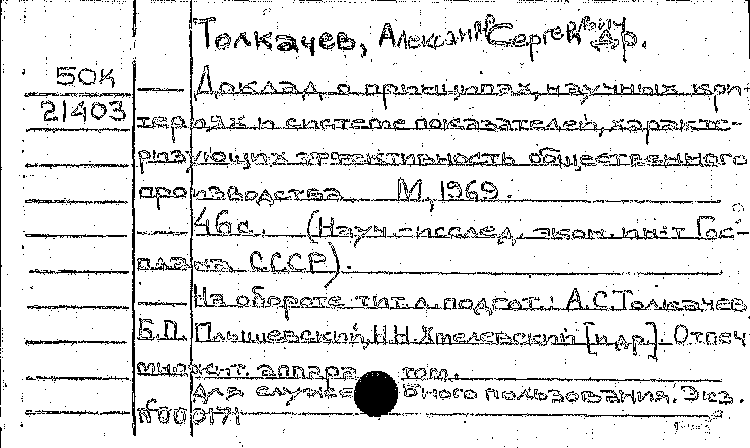 Толкачев, Александр Сергеевич и др.
БОК
Доклад о принципах, научных кри-
21403
териях и системе показателей, характе-
ризующих эффективность общественного
производства. М., 1969.
46 с. (Науч.-исслед. экон. ин-т Гос-
плана СССР).
На обороте тит. л. подгот.: А.С. Толкачев,
Б.П. Плышевский, Н.Н. Хмелевский [и др.]. Отпеч.
множит. аппаратом.
Для служебного пользования. Экз.
№000171